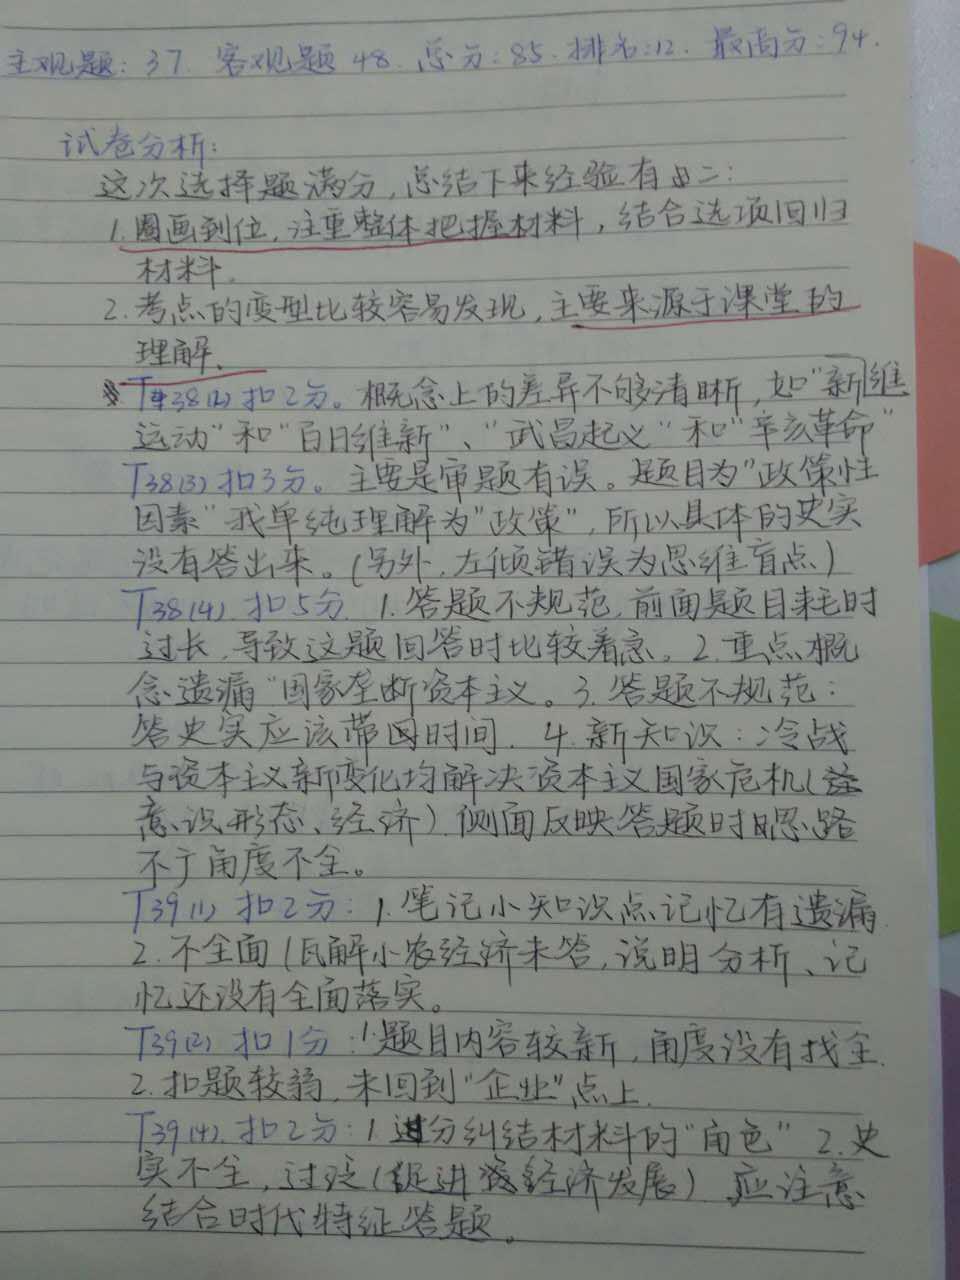 主观题：37. 客观题 48. 总分：85. 排名：12. 最高分：94.
试卷分析：
这次选择题满分，总结下来经验有二：
1. 圈画到位，注重整体把握材料，结合选项回归
材料。
2. 考点的变型比较容易发现，主要来源于课堂的
理解。
T38(2) 扣2分。概念上的差异不够清晰，如"新维
运动"和"百日维新"、"武昌起义"和"辛亥革命"
T38(3) 扣3分。主要是审题有误。题目为"政策性
因素"我单纯理解为"政策"，所以具体的史实
没有答出来。(另外，左倾错误为思维盲点)
T38(4). 扣5分. 1. 答题不规范，前面题目耗时
过长，导致这题回答时比较着急。2. 重点概
念遗漏"国家垄断资本主义。3. 答题不规范：
答史实应该带时间. 4. 新知识：冷战
与资本主义新变化均解决资本主义国家危机(
意识形态、经济). 侧面反映答题时思路
不广角度不全。
T39(1) 扣2分：1. 笔记小知识点记忆有遗漏
2. 不全面(瓦解小农经济未答，说明分析、记
忆还没有全面落实。
T39(2) 扣1分：1.题目内容较新，角度没有找全.
2. 扣题较弱，未回到"企业"点上.
T39(4). 扣2分：1. 过分纠结材料的"角色" 2. 史
实不全，过泛(促进经济发展) 应注意
结合时代特征答题。